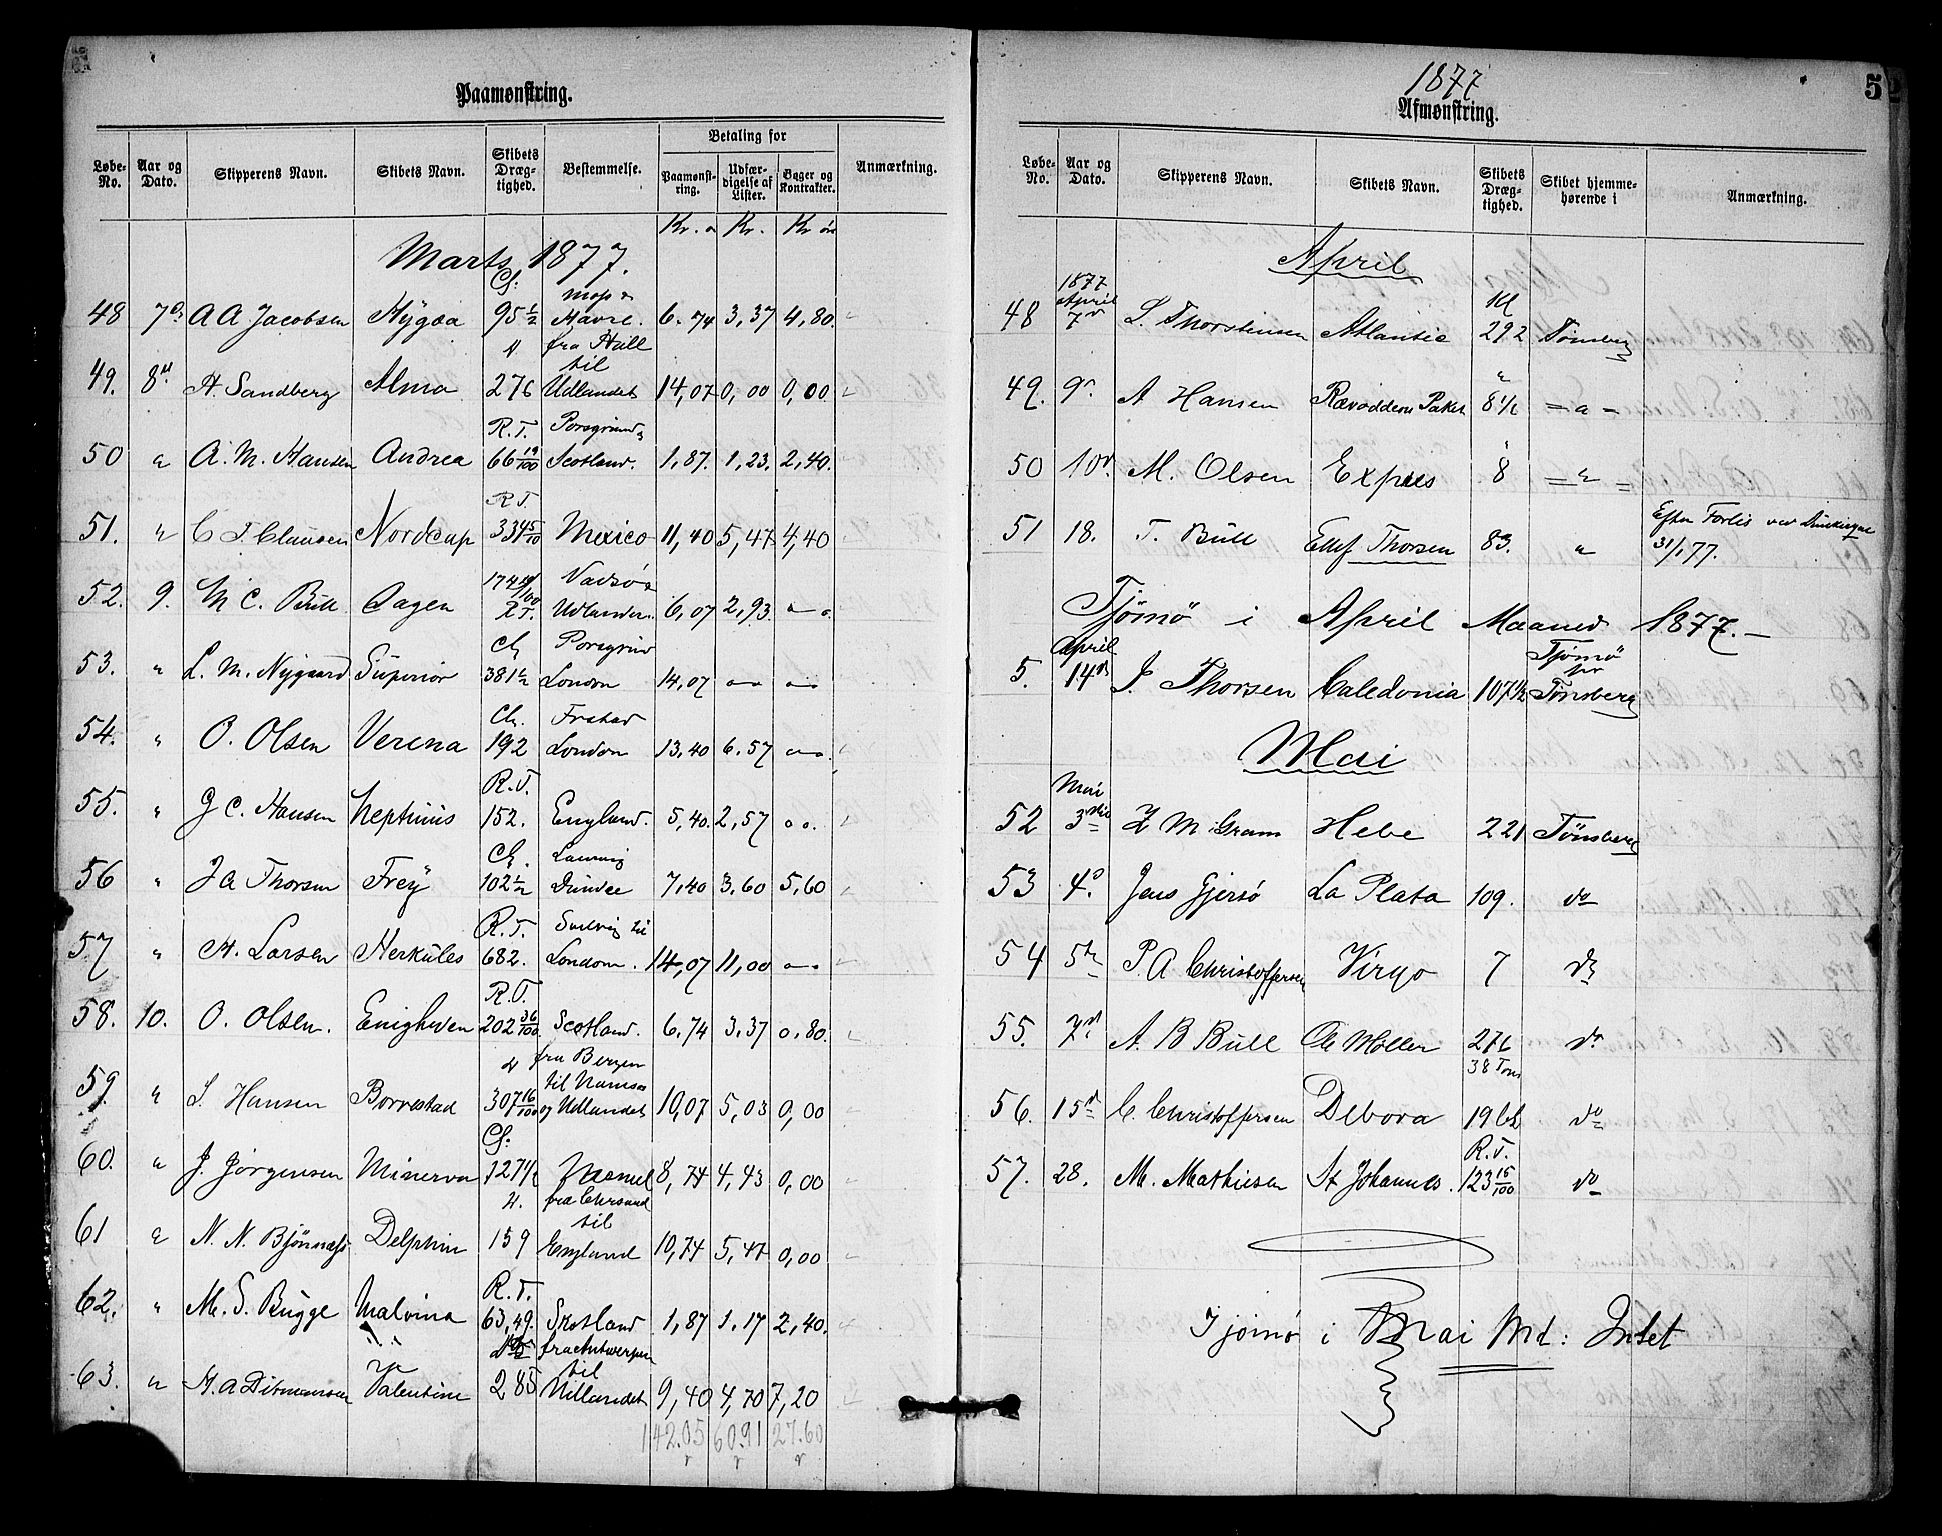 Paamønstring.
Løbe-No. Aar og Dato. Skipperens Navn. Skibets Navn. Skibets Dræg-tighed. Bestemmelse. Betaling for Paamønst-ring. Udfær-digelse af Lister. Bøger og Kontrakter. Anmærkning.
Kr. ø Kr. Kr. ør
Marts 1877.
48 7d A A Jacobsen Hygæa Cl: 95 1/2 Havre. 6.74 3,37 4,80.
49. 8d H. Sandberg Alma 276 fra Hull til Udlandet 14,07 0,00 0,00
50 " A. M. Hansen Andrea R.T. 66 19/100 Porsgrund Scotland. 1,87. 1,23. 2,40.
51. " C T. Clausen Nordcap R.T. 334 Mexico 11,40 5,47 4,40
52. 9. M C. Bull Dagen R.T. Vadsö Udlandet 6,07 2,93 "
53. " L. M. Nygaard Superior Cl 381 1/2 Porsgrund London 14,07 " "
54. " O. Olsen Verena Cl. 192 Frstad London 13,40 6.57 "
55. " J C. Hansen Neptunus R.T. 152. England. 5,40. 2,57 "
56 " J A Thorsen Freÿ Cl. 102 1/2 Laurvig Dundee 7,40 3.60 5,60
57 " H. Larsen Herkules R.T. 682. Svelvig til London. 14,07 11,00 "
58. 10. O. Olsen. Enigheden R.T. 202 36/100 Scotland. 6,74 3,37 0,80.
59. " S. Hansen Borrestad 307 16/100 fra Bergen til Namsos og Udlandet 10,07 5,03 0,00
60. " J. Jörgensen Minerva Cl: 127 1/2 8,74 4,43 0,00
61 " N. N. Bjönness Delphin 159 fra Chrsand til England 10,74 5,47 0,00
62. " M. S. Bugge Malvina R.T. 63,49. Skotland 1,87 1.17 2,40.
63. " H. A Ditmansen Valentine 285 fra Antwerpen til Udlandet 9,40 4,70 7,20
142.05 60.91 27.60
1877
Afmønstring.
5
Løbe-No. Aar og Dato. Skipperens Navn. Skibets Navn. Skibets Dræg-tighed. Skibet hjemme-hørende i Anmærkning.
April
48 1877 April 7d L. Thorstensen Atlantic Cl 292 Tønsberg
49. 9d A Hansen Rævoddens Paket 8 1/2 = " =
50 10d M. Olsen Expres 8 = " =
51 18. T. Bull Ellef Thorsen 83. " Efter Forlis ved Dunkirque 31/1 77.
Tjömö i April Maaned 1877. –
5. April 14d J. Thorsen Caledonia 107 1/2 Tjömö pr Tönsberg
Mai
52 Mai 3die H M Gram Hebe 221 Tönsberg
53 4d. Jens Gjersö La Plata 109. do
54 5te P. A Christoffersen Virgo 7 do
55. 7d A. B Bull Ole Möller 276 do
56. 15d C Christoffersen Debora 38 Tons 19 Cl. do
57. 28. M. Mathiesen St Johannes R.T. 123 15/100 do
Tjömö i Mai Md: Intet